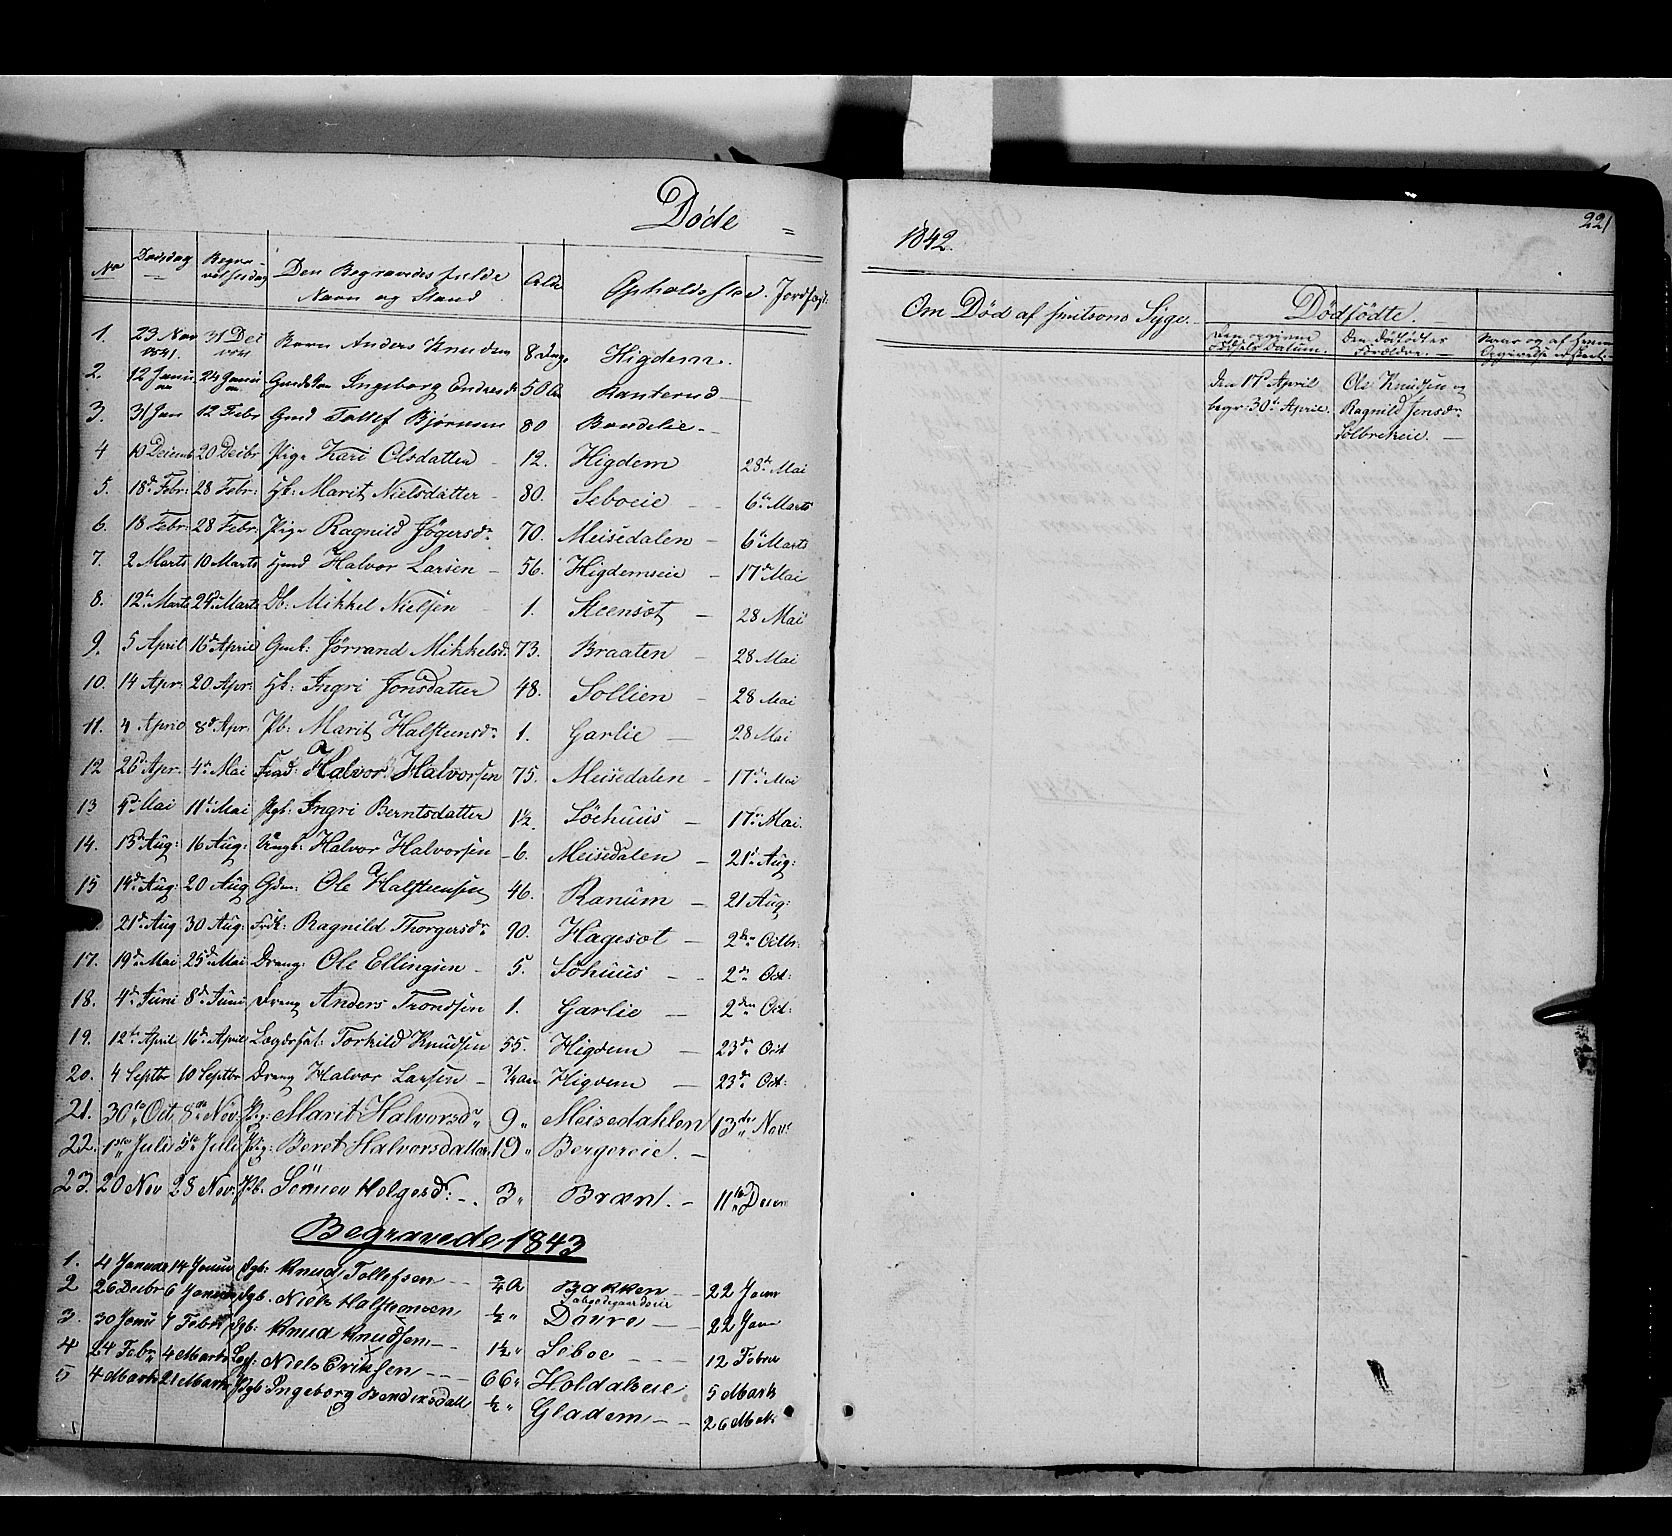 Døde =
No Dødsdag Begravelsesdag Den Begravedes fulde Navn og Stand Alder Opholdssted. Jordfæst.
1. 23 Nov 1841. 31 Dec 1841 Barn Anders Knudsen 8 Dage Higdem.
2. 12 Janu 24 Janu Ingeborg Endresd 50 Aar Ranterud
3. 31 Jan 12 Febr Gmd Tollef Bjørnsen 80 Bandelie
4 10 Decemb 20 Decbr Pige Kari Olsdatter 12. Higdem 28de Mai
5. 18d Febr: 28 Febr: Gk: Marit Nielsdatter 80. Seboeie 6te Marts
6. 18 Febr: 28 Febr: Pige Ragnild Jøgersdr. 70. Meisedalen 6te Marts
7. 2 Marts 10 Marts Gmd Halvor Larsen 56. Higdemseie 17d Mai
8. 12te Marts 24d. Marts Db: Mikkel Nielsen 1. Steensæt 28 Mai
9. 5 April 16d April Gmk: Jørrand Mikkelsdr. 73. Braaten 28 Mai
10. 14 Apr: 20 Apr: Gk: Ingri Jonsdatter 48. Sollien 28 Mai
11. 4 April 8d Apr. Pb: Marit Halsteensdr. 1. Garlie 28 Mai
12 26d Apr. 4de Mai Frad: Halvor Halvorsen 75. Meisedalen 17de Mai
13 4d Mai 11te Mai Pgb: Ingri Berntsdatter 1½ Söehuus 17de Mai.
14. 13d Aug: 16 Aug: Ungk: Halvor Halvorsen 6. Meisedalen 21d Aug:
15 14d Aug: 20 Aug Gdm: Ole Halsteensen 46. Ranum 21 Aug:
21d Aug 30 Aug: Frk: Ragnild Thorgersdr. 90. Hagesæt 2den Octbr:
17. 19d Mai 25d Mai Dreng Ole Ellingsen 5. Söhuus 2d Oct:
18. 4d Juni 8d Juni Dreng Anders Trondsen 1. Garlie 2den Oct:
19. 12te April 16d April Lægdsfat: Torkild Knudsen 55. Higdem 23de Oct
20. 4 Septbr 10 Septbr Dreng Halvor Larsen Higdem 23de Oct:
21. 30te Oct. 8de Nov. Pig: Marit Halvorsdr 9 " Meisedahlen 13de Nov.
22. 1ste Julii 5te Julii Pig: Beret Halvorsdatter 19 " Bergereie.
23. 20 Nov 28 Nov. Pb. Helgesd: 3 " Bræn. 11te Decem
Begravede 1843
1. 4 Januar 14 Januar Dgb: Knud Tollefsen ¾ A Bakken 22 Janr
2 26 Decbr 6 Januar Dgb. Niels Halsteensen ½ " Døvre 22 Jan
3. 30 Janu 7 Febr Dgb: Knud Knudsen 1½ " Seboe 12 Febru
4 24 Febr 4 Marts Niels Eriksen 66 " Holdalseie 5 Marts
5 4 Marts 21 Marts Pgb Ingeborg Bendiksdatt ½ " Gladem 26 Mts
1842.
221
Om Død af smitsom Syge.
Dødfødte.
Den Dødfødtes Forældre.
Den 17d April begr: 30te April. Ole Knudsen og
Ragnild Jensdr.
Solbrekeie.